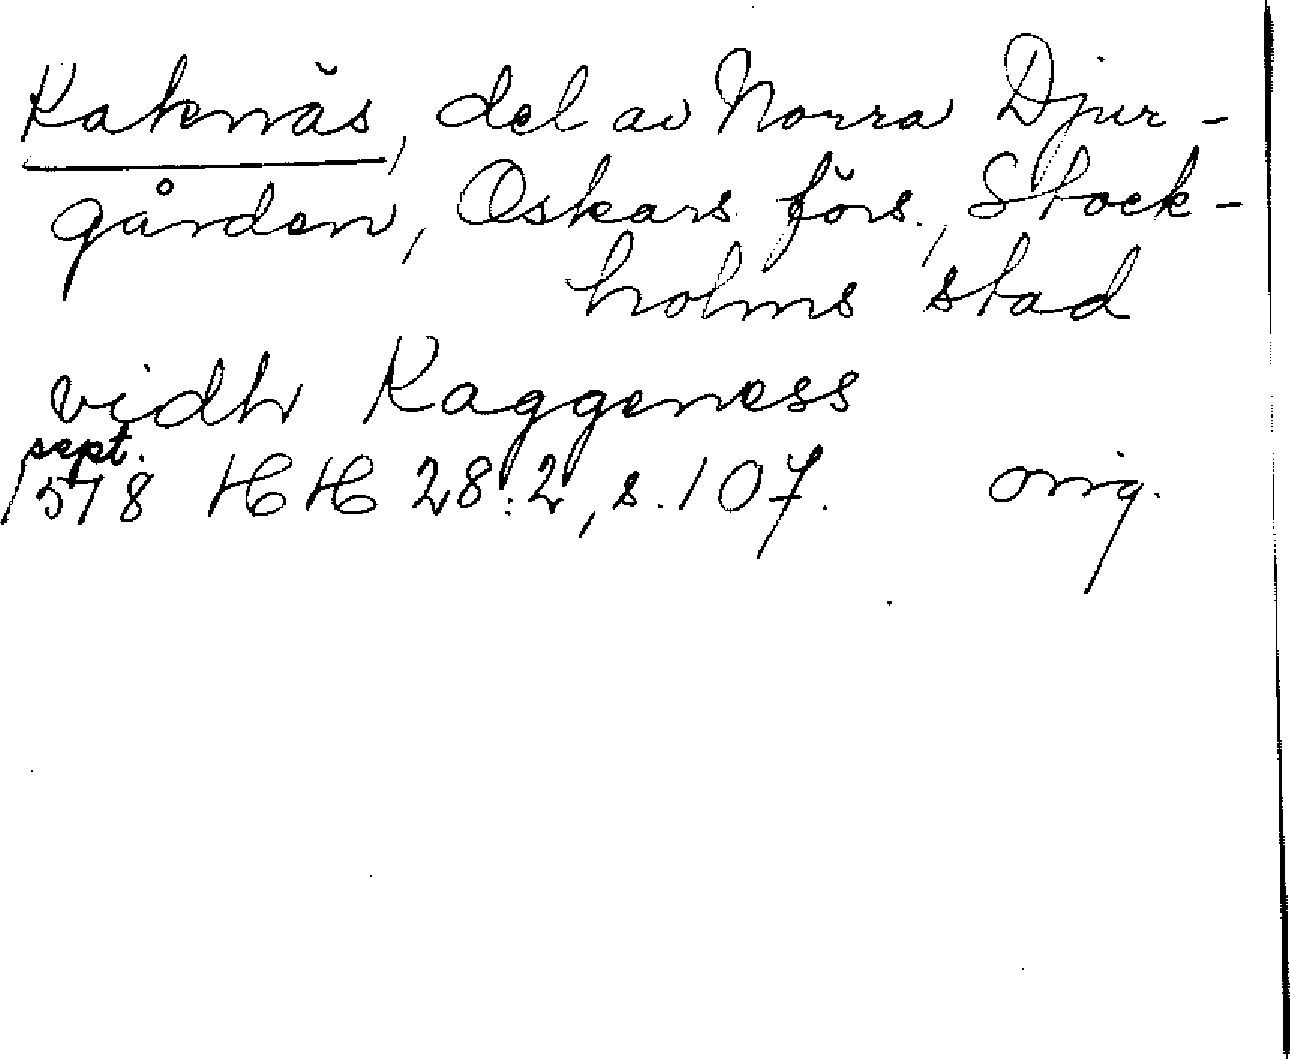 Kaknäs, del av Norra Djur-
gården, Oskars förs., Stock-
holms stad
vidh Kaggeness
sept.
1578 HH 28:2, s. 107. orig.